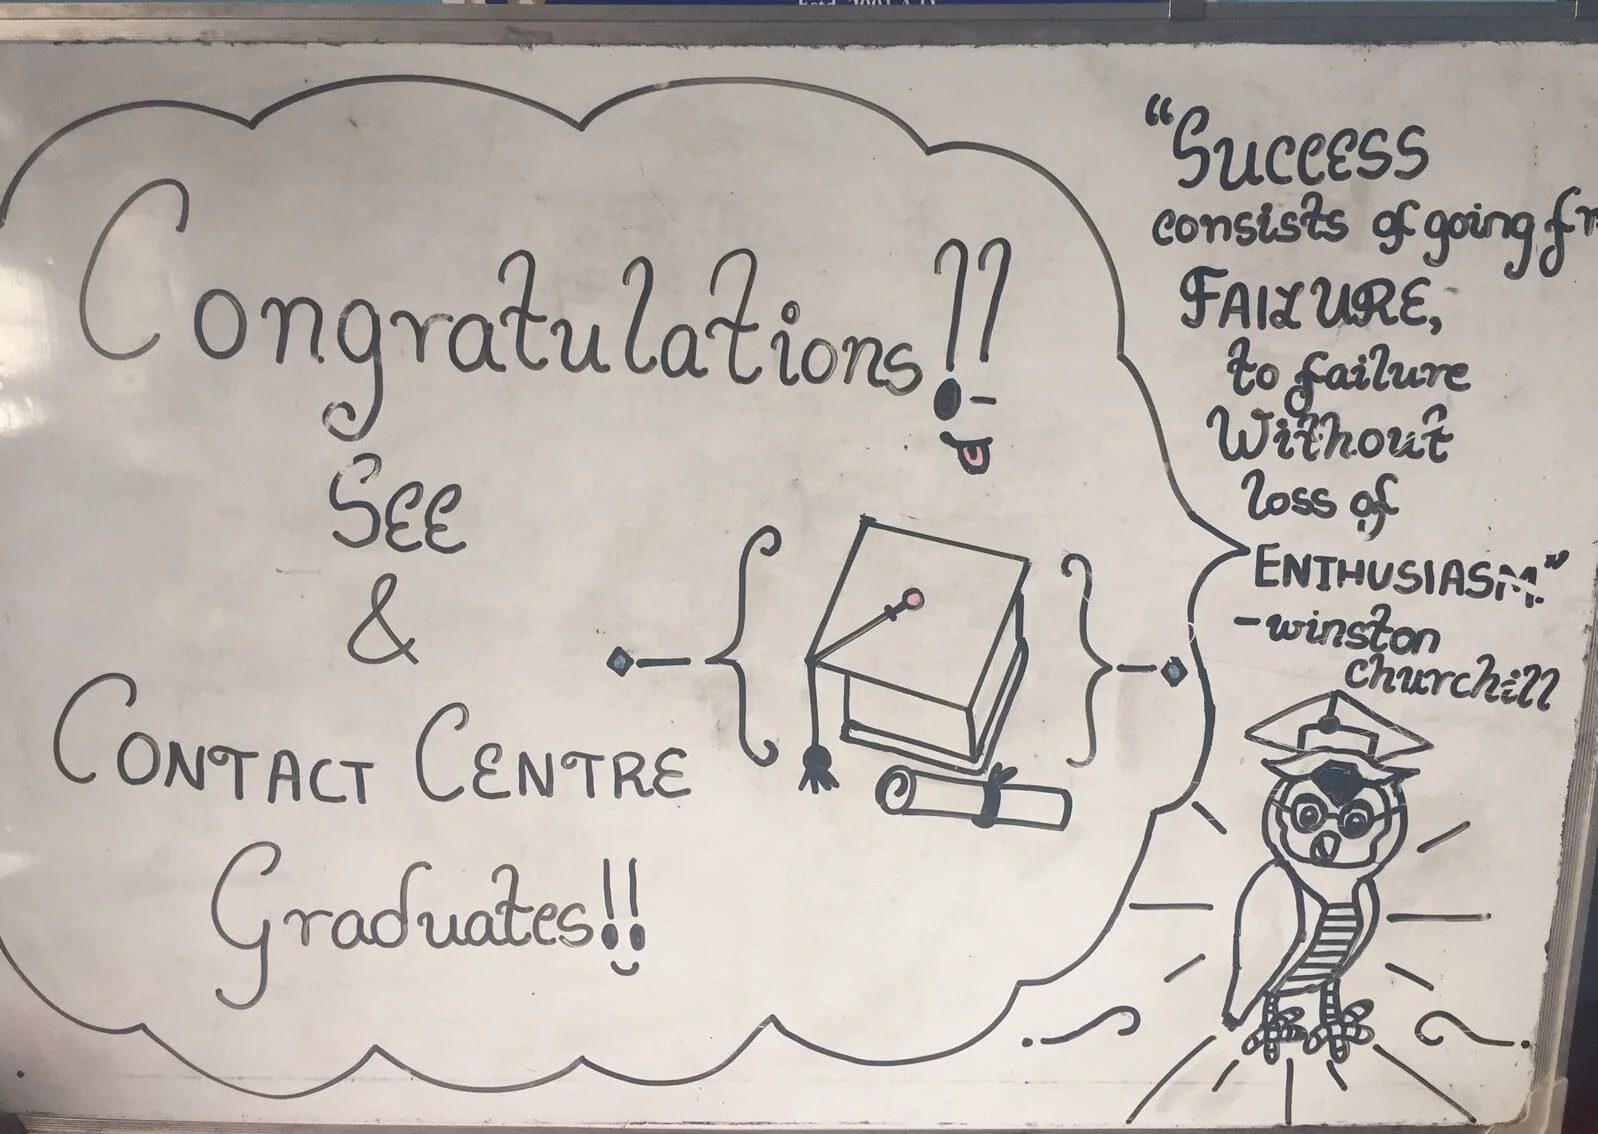 Congratulations!!
SEE
&
CONTACT CENTRE
Graduates!!
"SUCCESS
consists of going fr
FAILURE,
to failure
Without
loss of
ENTHUSIASM."
-winston
churchill